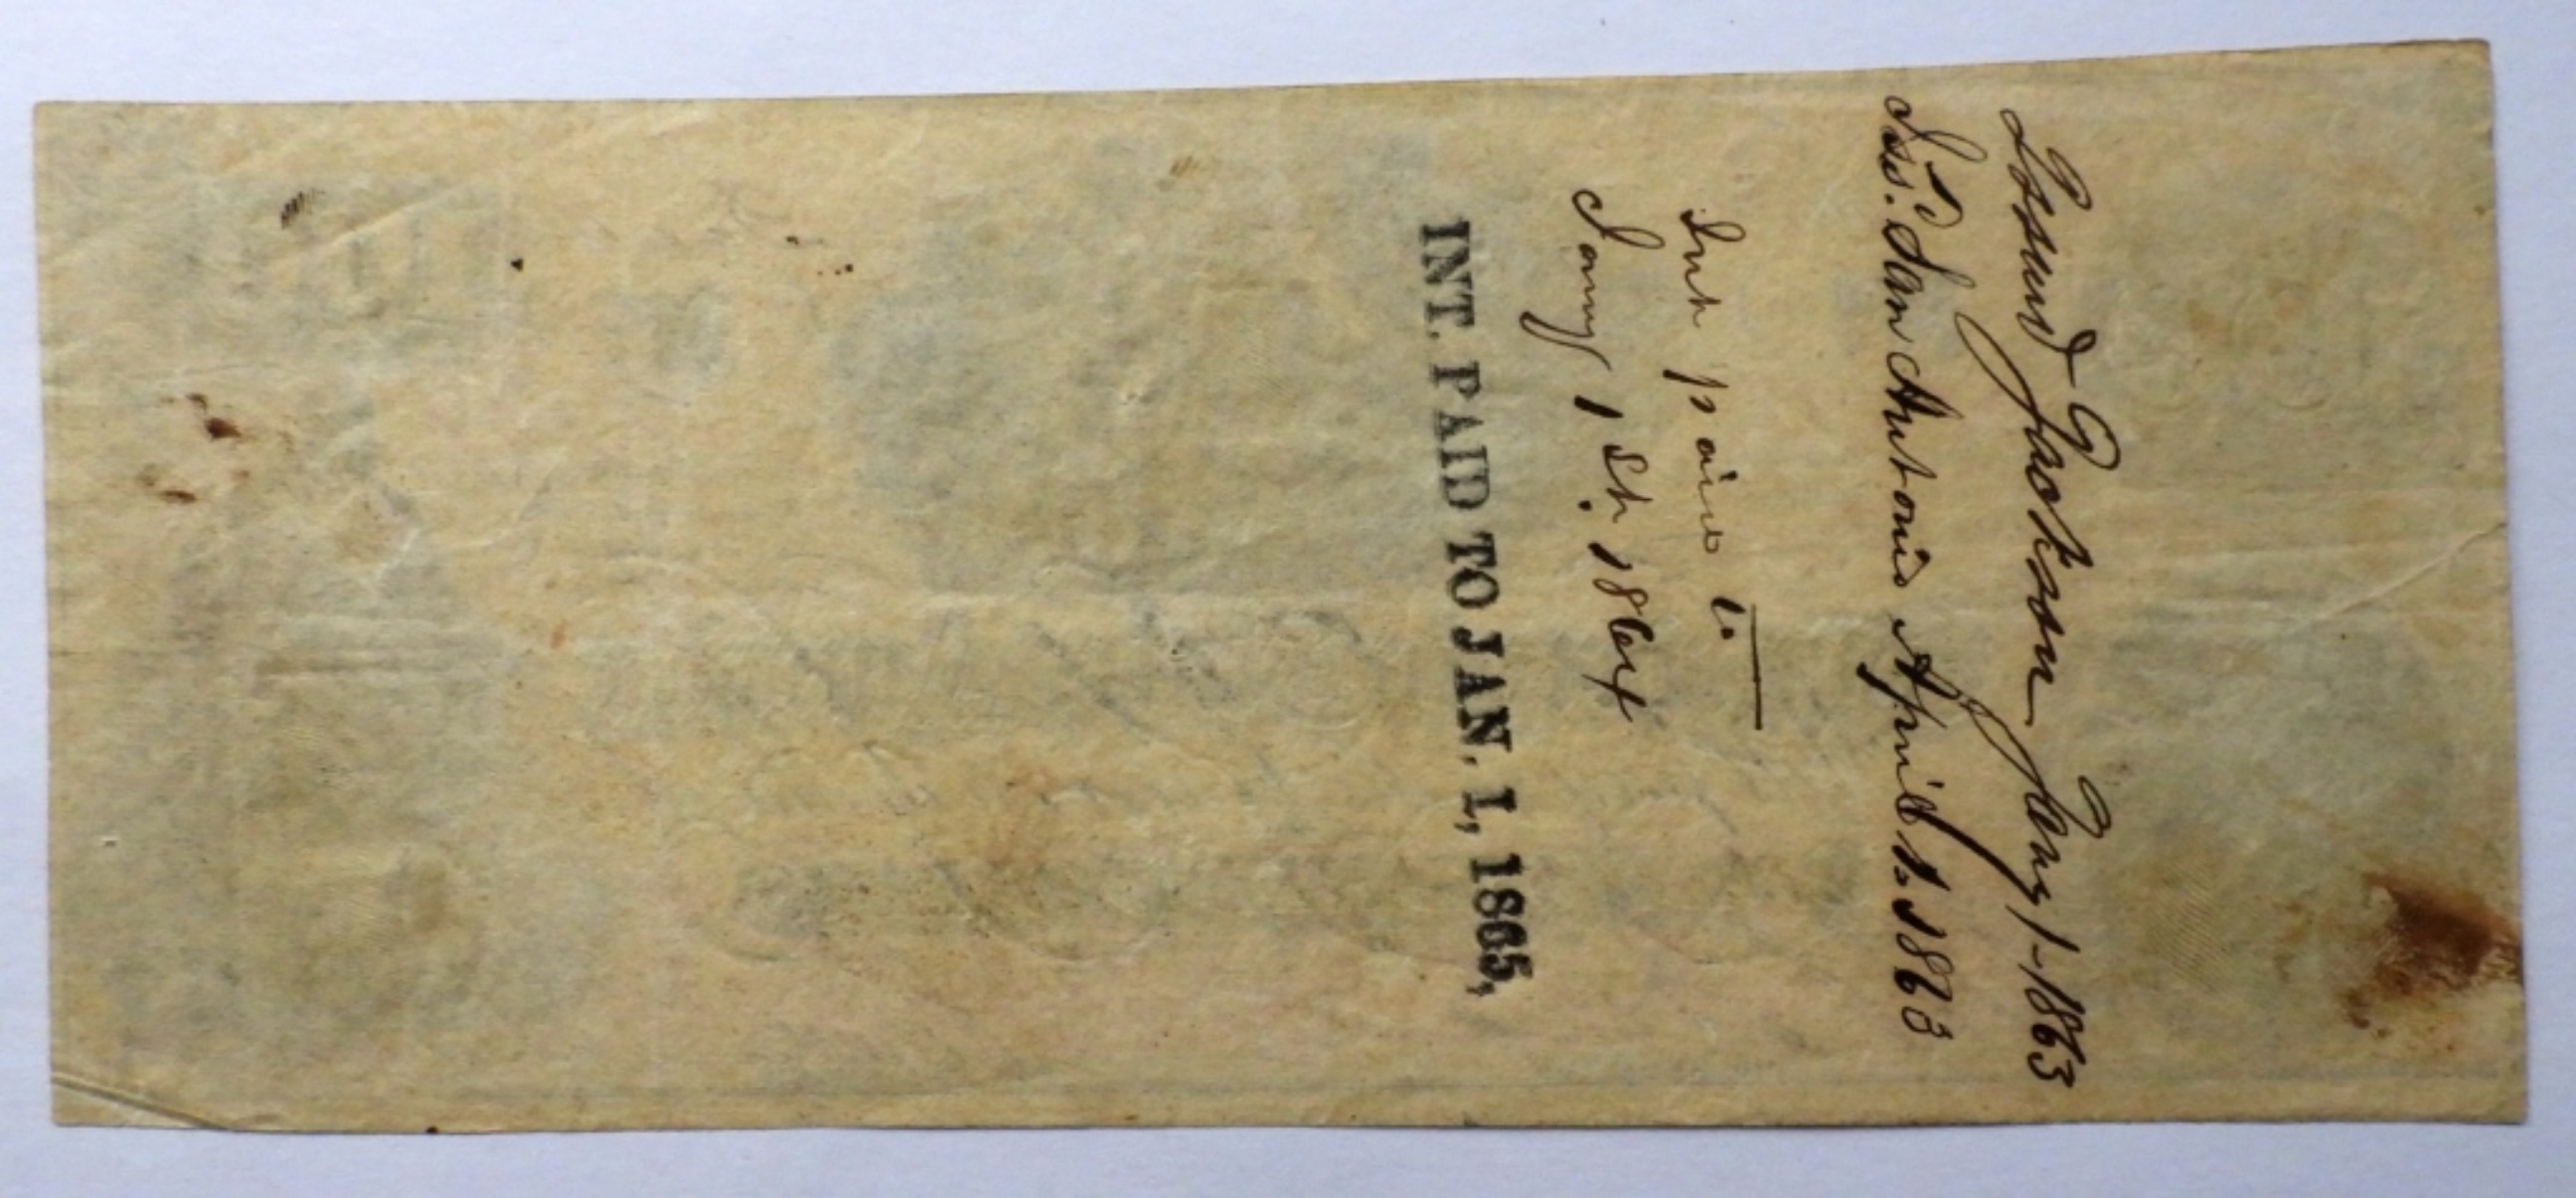 Issued Jackson Jany 1-1863
Iss. San Antonio April 1. 1863
Int paid to
Jany 1st. 1864
INT. PAID TO JAN. 1, 1865,